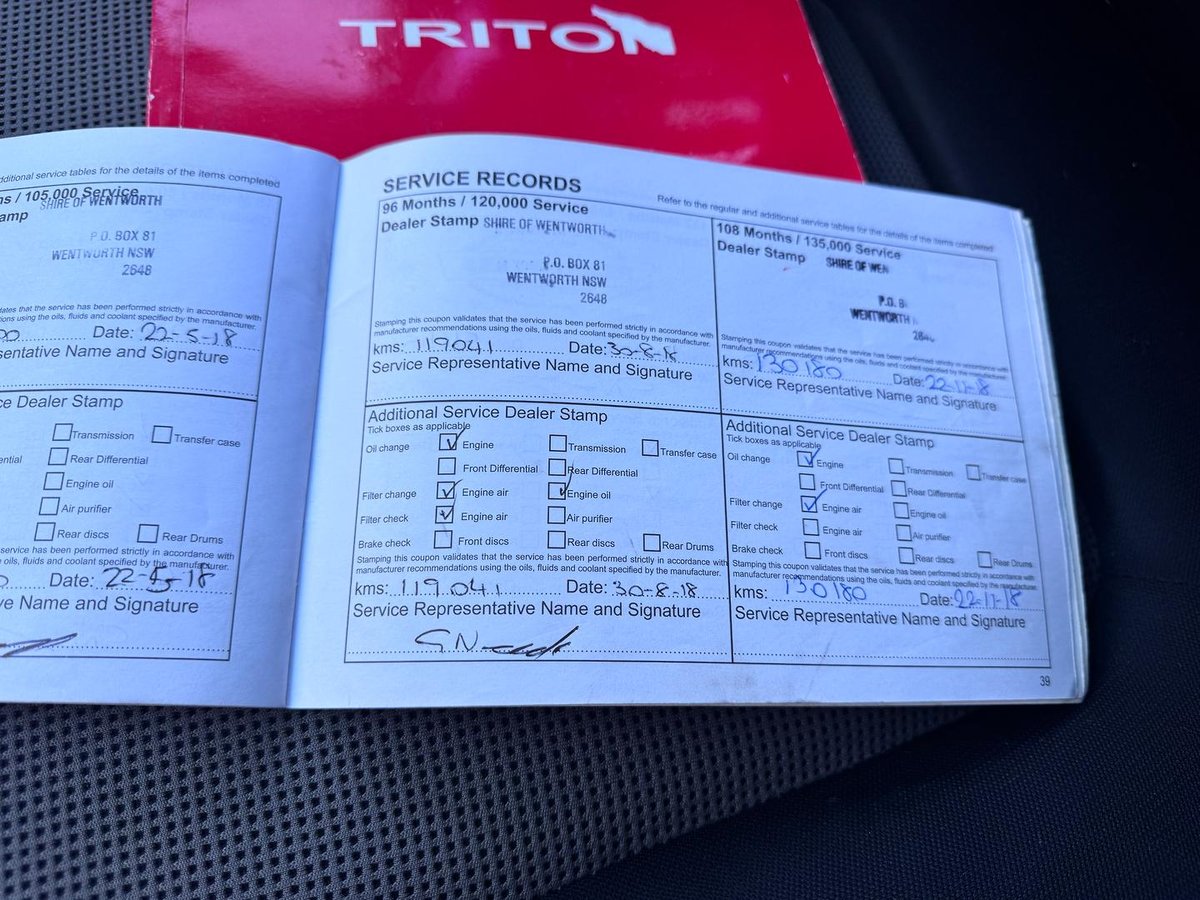 TRITON
dditional service tables for the details of the items completed
hs / 105,000 Service
SHIRE OF WENTWORTH
amp
P.O. BOX 81
WENTWORTH NSW
2648
dates that the service has been performed strictly in accordance with
tions using the oils, fluids and coolant specified by the manufacturer.
Date: 22-5-18
sentative Name and Signature
ce Dealer Stamp
Transmission Transfer case
ential Rear Differential
Engine oil
Air purifier
Rear discs Rear Drums
service has been performed strictly in accordance with
oils, fluids and coolant specified by the manufacturer.
Date: 22-5-18
ve Name and Signature
SERVICE RECORDS
Refer to the regular and additional service tables for the details of the items completed
96 Months / 120,000 Service
Dealer Stamp SHIRE OF WENTWORTH
P.O. BOX 81
WENTWORTH NSW
2648
Stamping this coupon validates that the service has been performed strictly in accordance with
manufacturer recommendations using the oils, fluids and coolant specified by the manufacturer.
kms: 119041 Date: 30-8-18
Service Representative Name and Signature
Additional Service Dealer Stamp
Tick boxes as applicable
Oil change Engine Transmission Transfer case
Front Differential Rear Differential
Filter change Engine air Engine oil
Filter check Engine air Air purifier
Brake check Front discs Rear discs Rear Drums
Stamping this coupon validates that the service has been performed strictly in accordance with
manufacturer recommendations using the oils, fluids and coolant specified by the manufacturer.
kms: 119041 Date: 30-8-18
Service Representative Name and Signature
108 Months / 135,000 Service
Dealer Stamp SHIRE OF WEN
P.O. 8
WENTWORTH
264
Stamping this coupon validates that the service has been performed strictly in accordance with
manufacturer recommendations using the oils, fluids and coolant specified by the manufacturer.
kms: 130180 Date: 22-11-18
Service Representative Name and Signature
Additional Service Dealer Stamp
Tick boxes as applicable
Oil change Engine Transmission Transfer case
Front Differential Rear Differential
Filter change Engine air Engine oil
Filter check Engine air Air purifier
Brake check Front discs Rear discs Rear Drums
Stamping this coupon validates that the service has been performed strictly in accordance with
manufacturer recommendations using the oils, fluids and coolant specified by the manufacturer.
kms: 130180 Date: 22-11-18
Service Representative Name and Signature
39